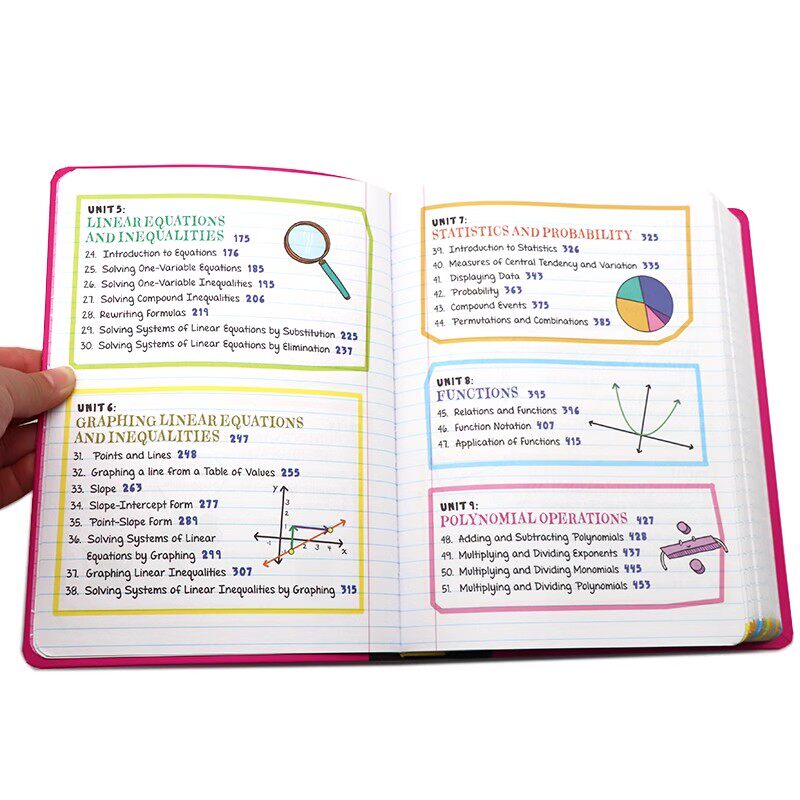 UNIT 5:
LINEAR EQUATIONS
AND INEQUALITIES 175
24. Introduction to Equations 176
25. Solving One-Variable Equations 185
26. Solving One-Variable Inequalities 195
27. Solving Compound Inequalities 206
28. Rewriting Formulas 219
29. Solving Systems of Linear Equations by Substitution 225
30. Solving Systems of Linear Equations by Elimination 237
UNIT 6:
GRAPHING LINEAR EQUATIONS
AND INEQUALITIES 247
31. Points and Lines 248
32. Graphing a line from a Table of Values 255
33. Slope 263
34. Slope-Intercept Form 277
35. Point-Slope Form 289
36. Solving Systems of Linear
Equations by Graphing 299
37. Graphing Linear Inequalities 307
38. Solving Systems of Linear Inequalities by Graphing 315
y
3
2
1
2 3 4 x
UNIT 7:
STATISTICS AND PROBABILITY 325
39. Introduction to Statistics 326
40. Measures of Central Tendency and Variation 335
41. Displaying Data 343
42. Probability 363
43. Compound Events 375
44. Permutations and Combinations 385
UNIT 8:
FUNCTIONS 395
45. Relations and Functions 396
46. Function Notation 407
47. Application of Functions 415
UNIT 9:
POLYNOMIAL OPERATIONS 427
48. Adding and Subtracting Polynomials 428
49. Multiplying and Dividing Exponents 437
50. Multiplying and Dividing Monomials 445
51. Multiplying and Dividing Polynomials 453